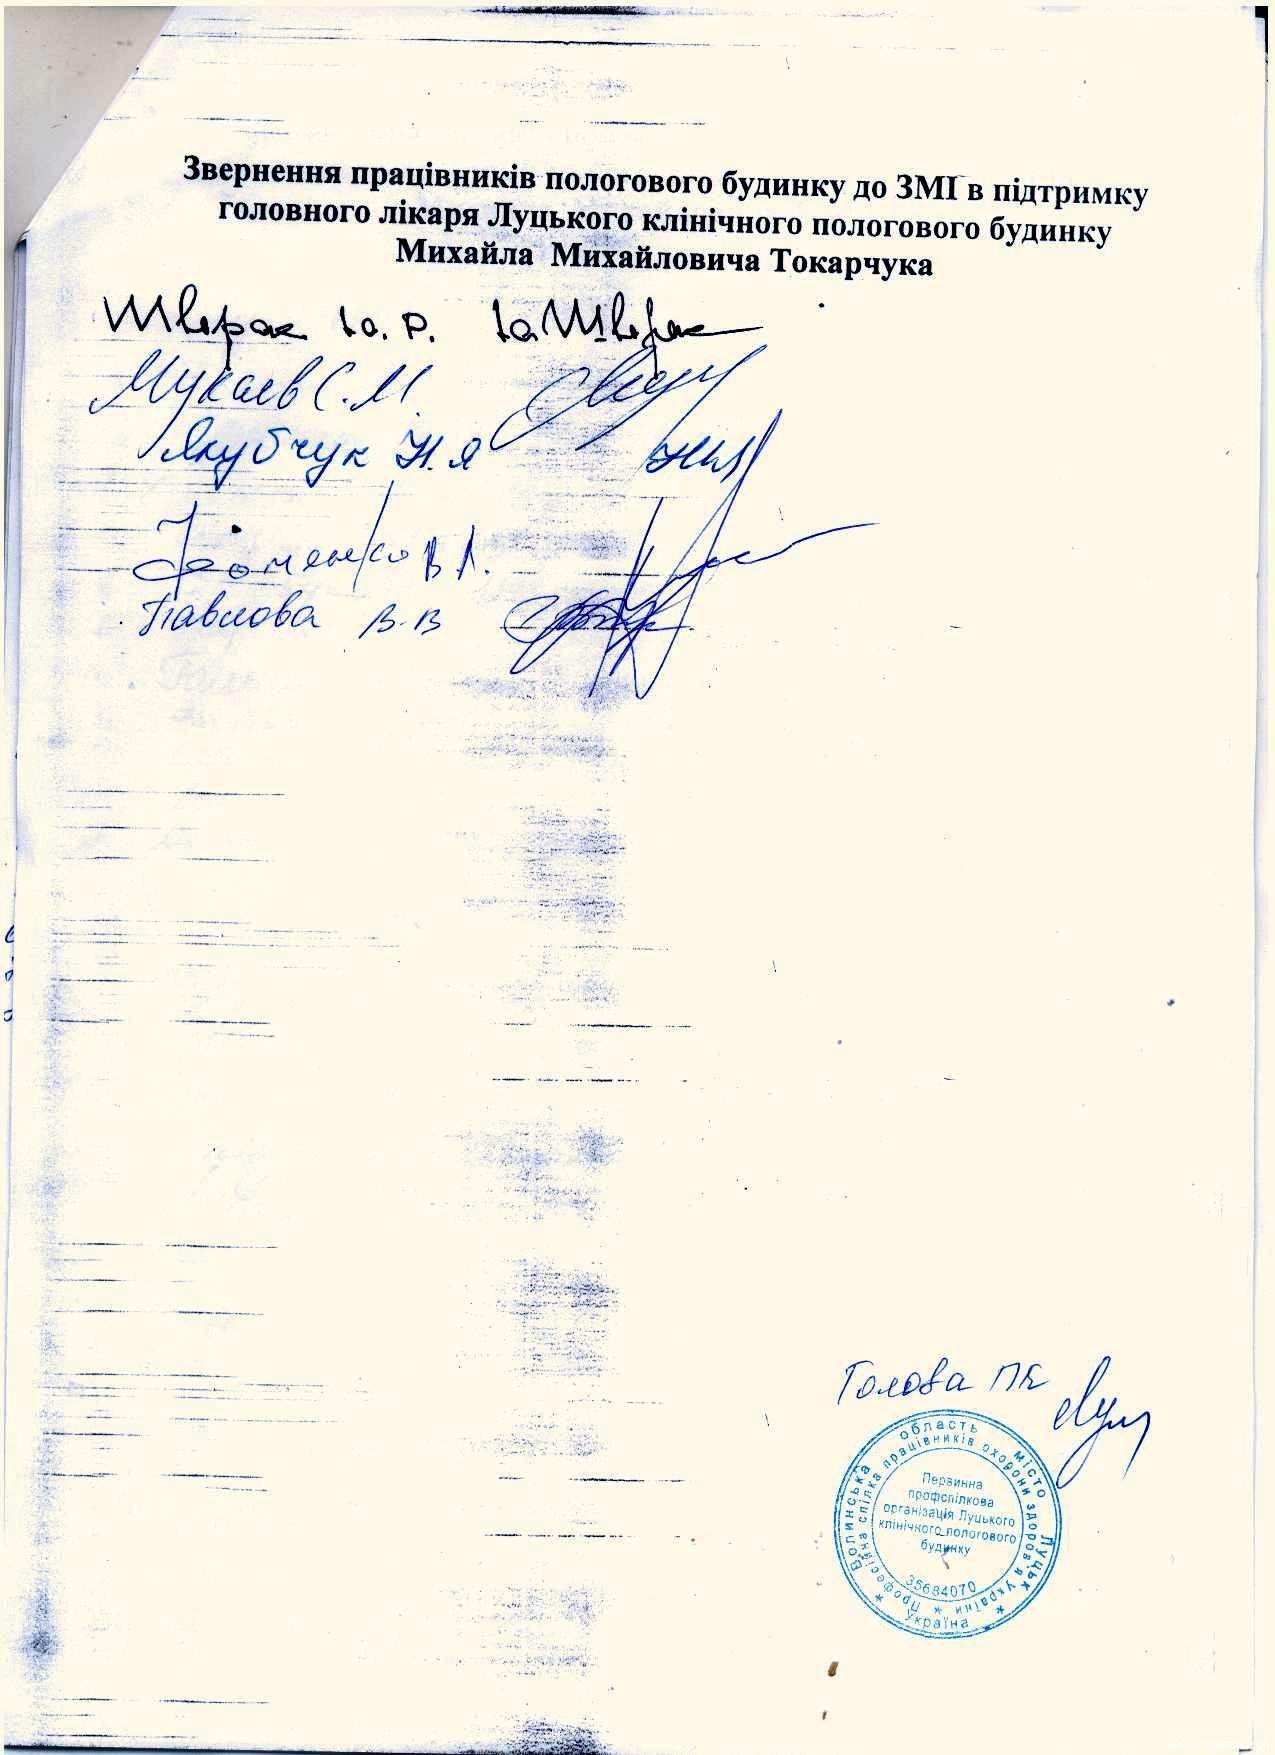 Звернення працівників пологового будинку до ЗМІ в підтримку
головного лікаря Луцького клінічного пологового будинку
Михайла Михайловича Токарчука
Шверак Ю. Р.
Мукаєв С. М.
Якубчук Н. Я
Фоменко В Л.
Павлова В. В
Голова ПК
Волинська область місто Луцьк
Професійна спілка працівників охорони здоров'я України
Первинна
профспілкова
організація Луцького
клінічного пологового
будинку
35684070
Україна